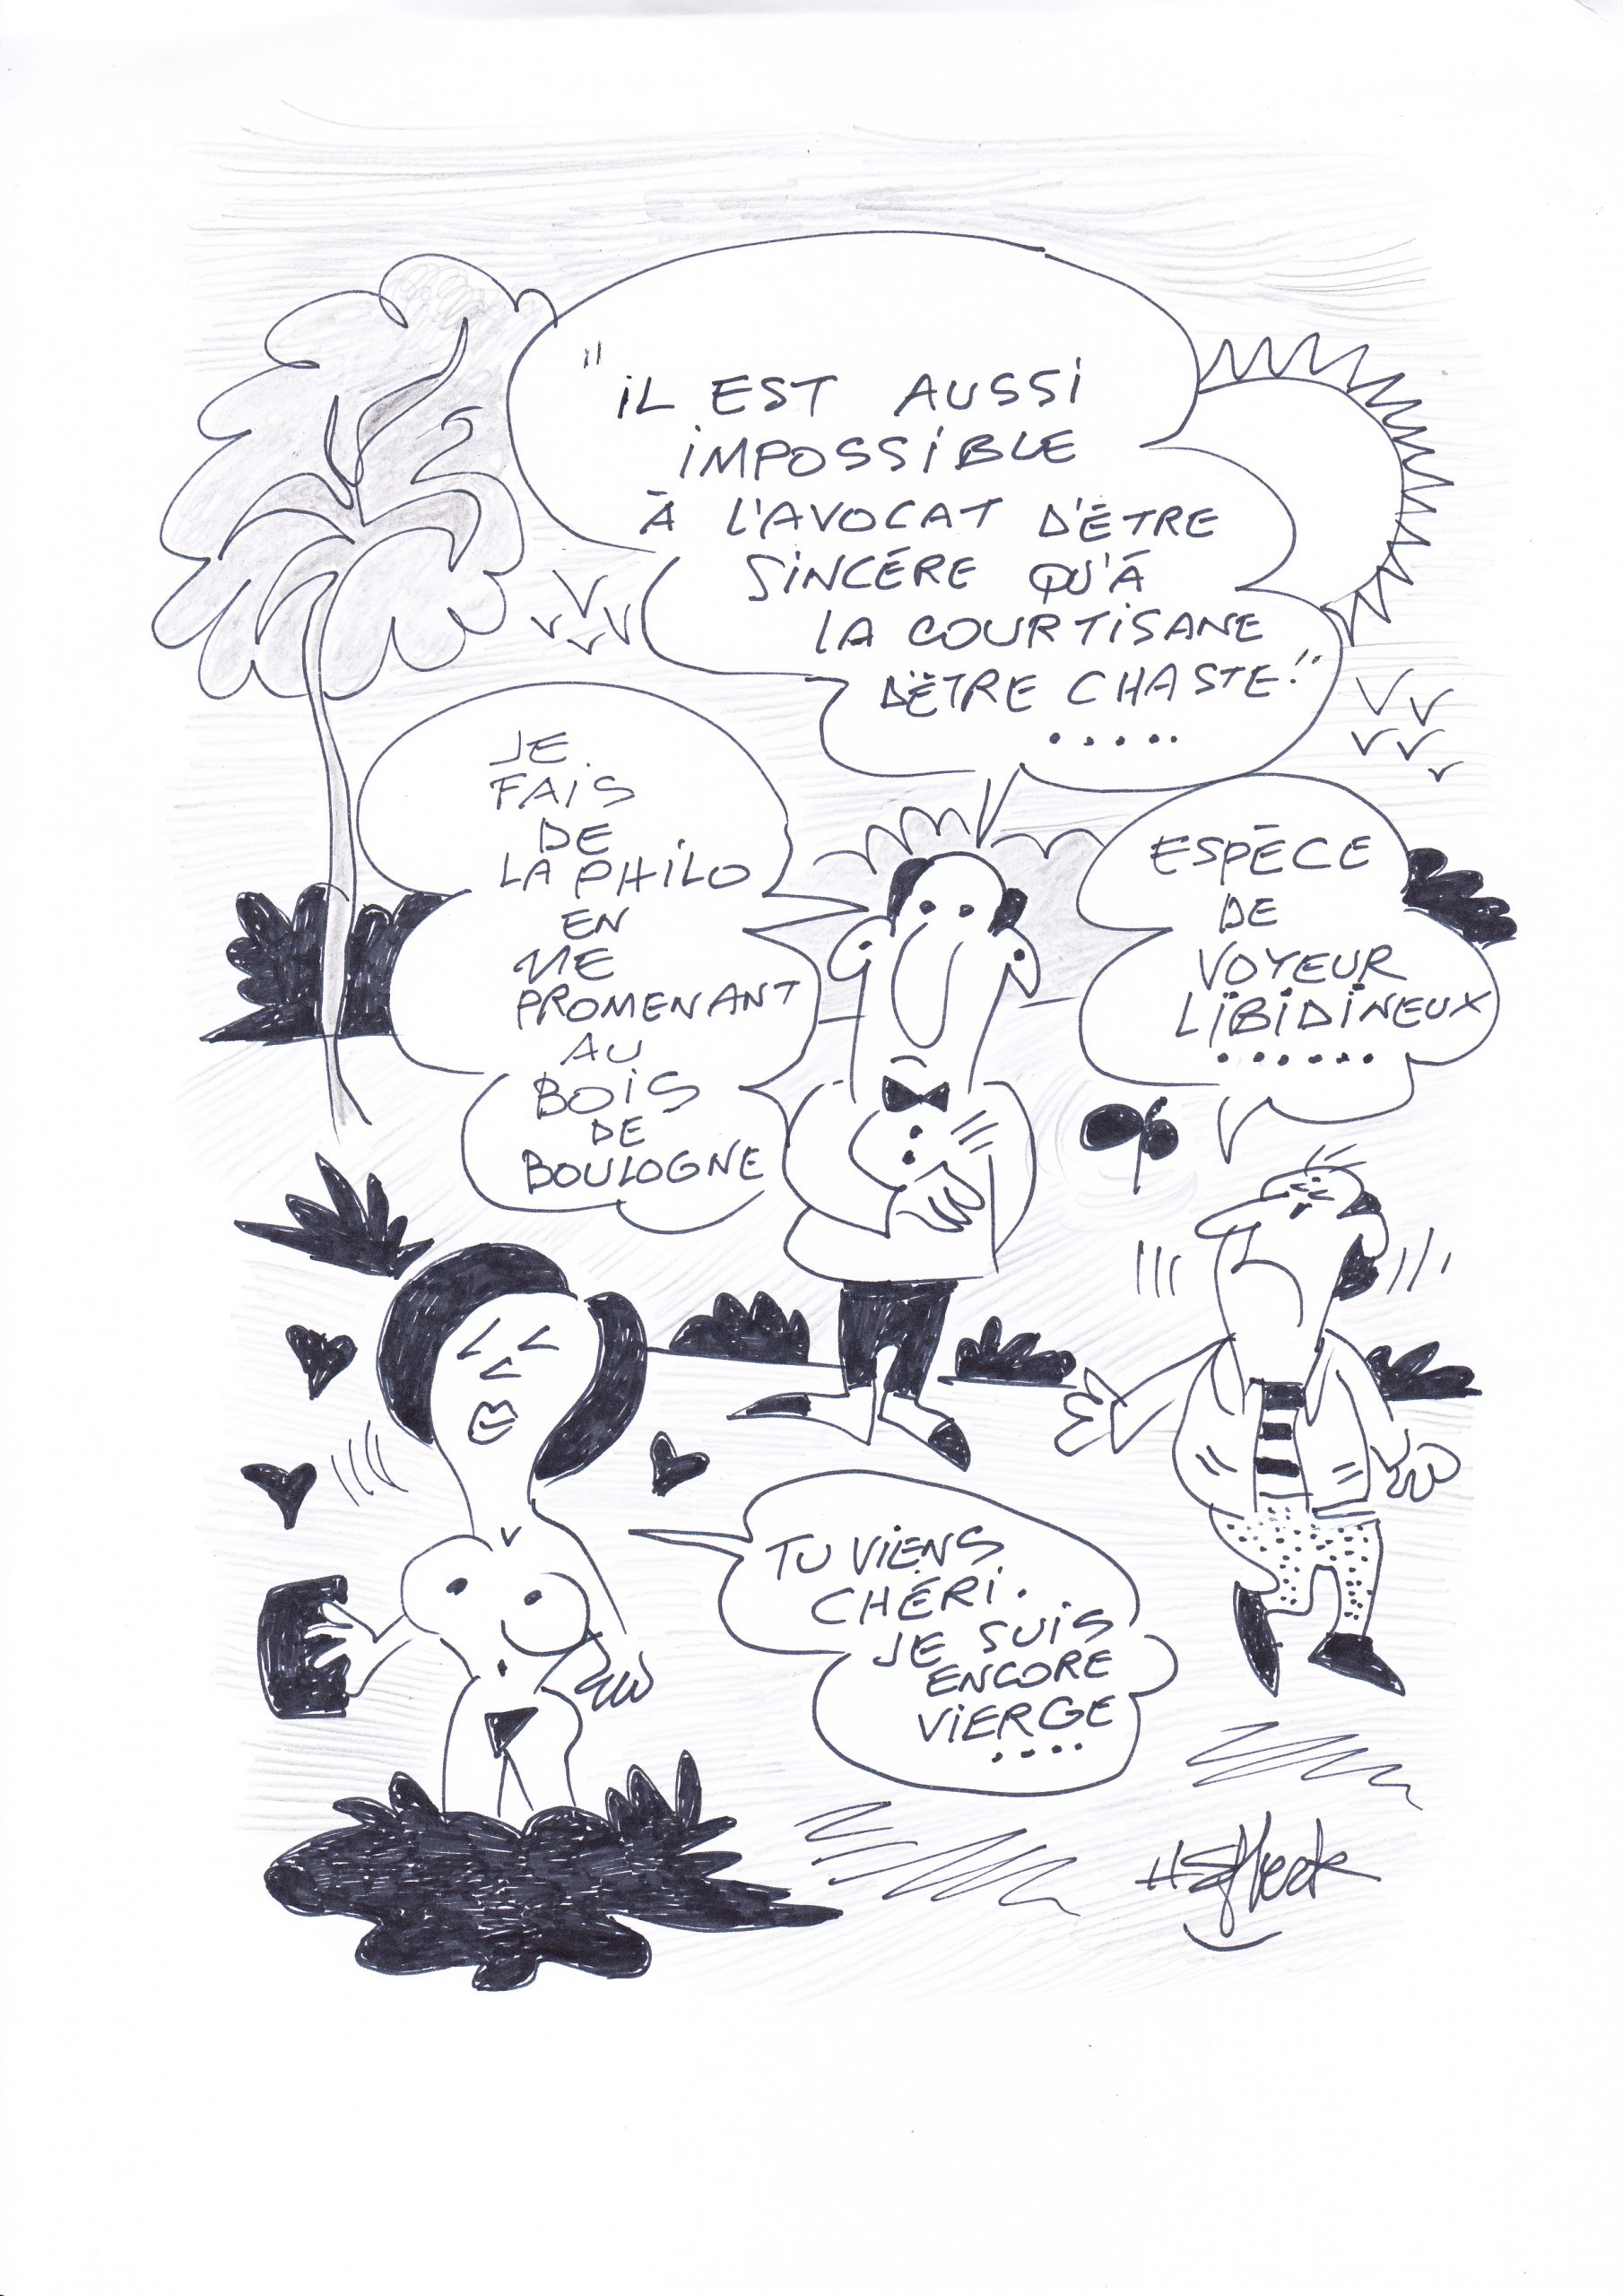 "IL EST AUSSI
IMPOSSIBLE
À L'AVOCAT D'ÊTRE
SINCÉRE QU'À
LA COURTISANE
D'ÊTRE CHASTE!"
.....
JE
FAIS
DE
LA PHILO
EN
ME
PROMENANT
AU
BOIS
DE
BOULOGNE
ESPÈCE
DE
VOYEUR
LIBIDINEUX
.......
TU VIENS
CHÉRI.
JE SUIS
ENCORE
VIERGE
....